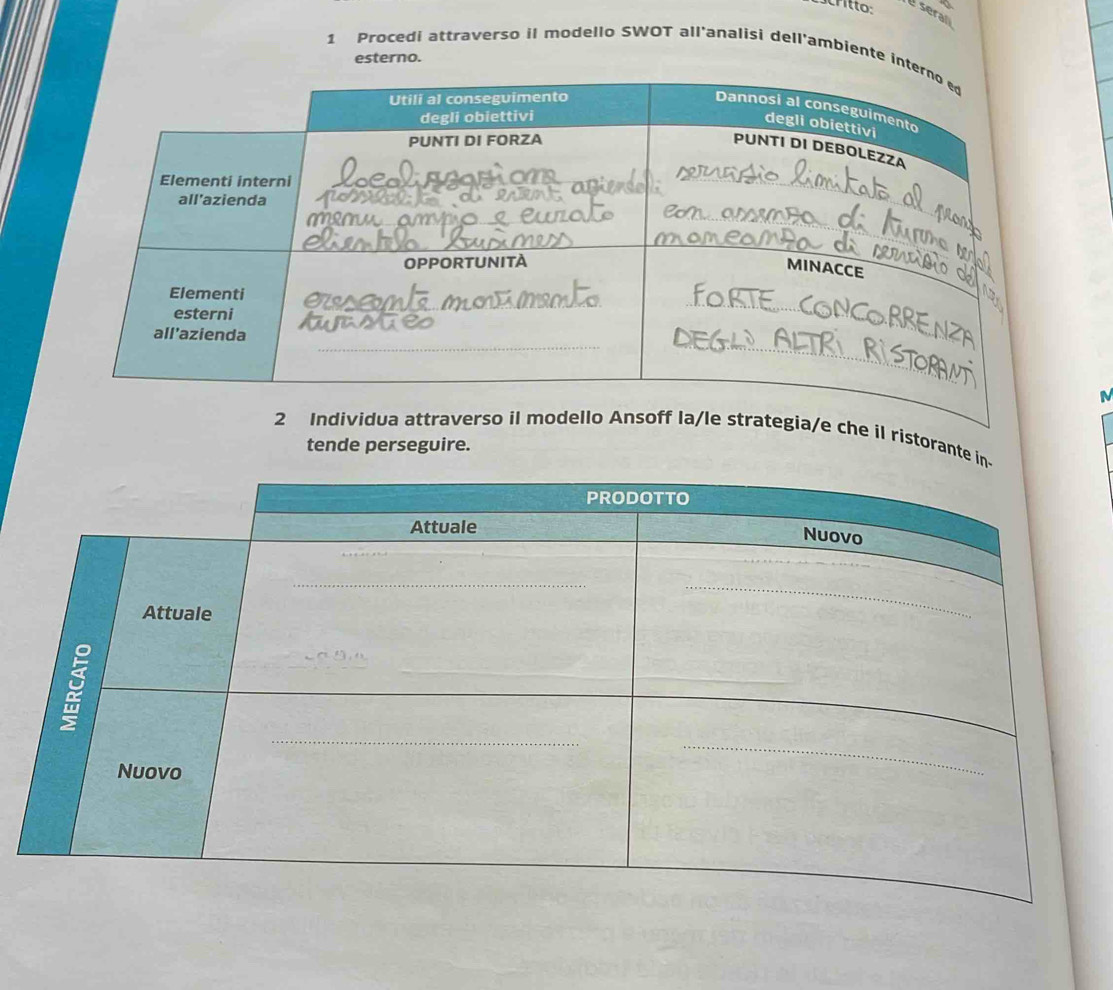 1 Procedi attraverso il modello SWOT all'analisi dell'ambiente interno ed
esterno.
Utili al conseguimento
degli obiettivi
Dannosi al conseguimento
degli obiettivi
Elementi interni
all'azienda
PUNTI DI FORZA
localizzazione
possibilità di eventi aziendali
menu ampio e curato
clientela business
PUNTI DI DEBOLEZZA
servizio limitato al pranzo
con assenza di turno serale
mancanza di servizio
Elementi
esterni
all'azienda
OPPORTUNITÀ
crescente movimento
turistico
MINACCE
FORTE CONCORRENZA
DEGLI ALTRI RISTORANTI
2 Individua attraverso il modello Ansoff la/le strategia/e che il ristorante in-
tende perseguire.
PRODOTTO
Attuale
Nuovo
MERCATO
Attuale
Nuovo